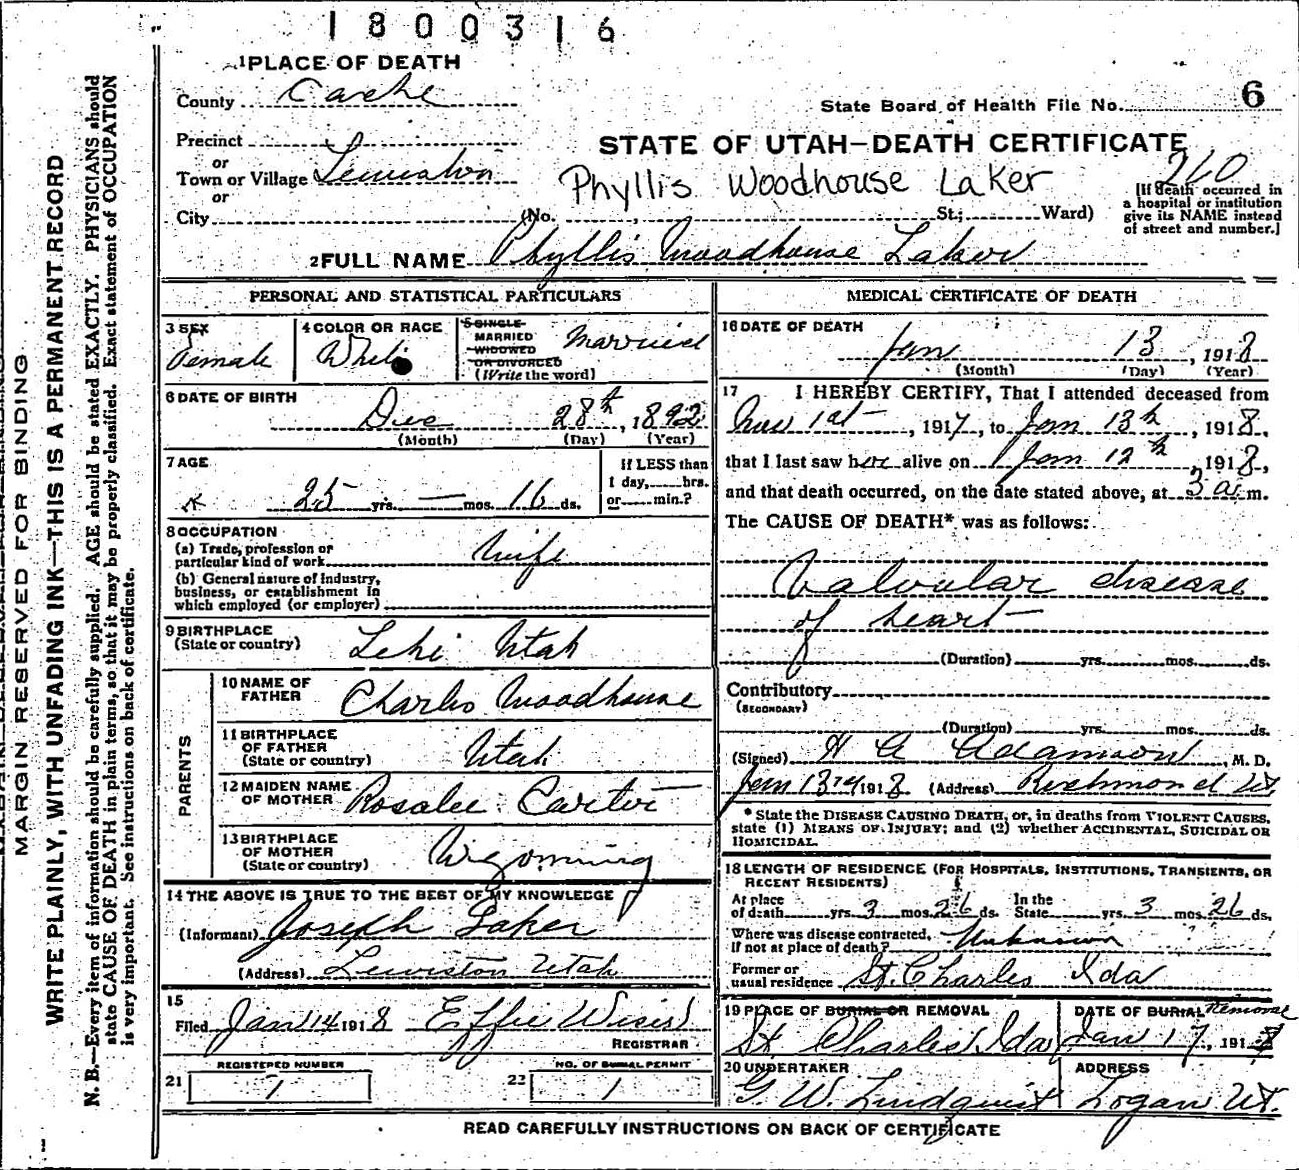 1800316
1 PLACE OF DEATH
County Cache
State Board of Health File No. 6
Precinct
or
Town or Village Lewiston
or
City (No. , St.; Ward)
STATE OF UTAH—DEATH CERTIFICATE
260
Phyllis Woodhouse Laker
[If death occurred in
a hospital or institution
give its NAME instead
of street and number.]
2 FULL NAME Phyllis Woodhouse Laker
PERSONAL AND STATISTICAL PARTICULARS
3 SEX
Female
4 COLOR OR RACE
White
5 SINGLE
MARRIED
WIDOWED
OR DIVORCED
(Write the word)
Married
6 DATE OF BIRTH
Dec 28th, 1892
(Month) (Day) (Year)
7 AGE
25 yrs. — mos. 16 ds.
If LESS than
1 day, hrs.
or min.?
8 OCCUPATION
(a) Trade, profession or
particular kind of work Wife
(b) General nature of industry,
business, or establishment in
which employed (or employer)
9 BIRTHPLACE
(State or country) Lehi Utah
PARENTS
10 NAME OF
FATHER Charles Woodhouse
11 BIRTHPLACE
OF FATHER
(State or country) Utah
12 MAIDEN NAME
OF MOTHER Rosalee Carter
13 BIRTHPLACE
OF MOTHER
(State or country) Wyomming
14 THE ABOVE IS TRUE TO THE BEST OF MY KNOWLEDGE
(Informant) Joseph Laker
(Address) Lewiston Utah
15
Filed Jan 14 1918 Effie Wiser
REGISTRAR
REGISTERED NUMBER
21 1
NO. OF BURIAL PERMIT
22 1
MEDICAL CERTIFICATE OF DEATH
16 DATE OF DEATH
Jan 13, 1918
(Month) (Day) (Year)
17 I HEREBY CERTIFY, That I attended deceased from
Nov 1st, 1917, to Jan 13th, 1918,
that I last saw her alive on Jan 12th, 1918,
and that death occurred, on the date stated above, at 3 a.m.
The CAUSE OF DEATH* was as follows:
Valvular disease
of heart
(Duration) yrs. mos. ds.
Contributory
(SECONDARY)
(Duration) yrs. mos. ds.
(Signed) H A Adamson, M. D.
Jan 13 1918 (Address) Richmond Ut.
* State the DISEASE CAUSING DEATH, or, in deaths from VIOLENT CAUSES,
state (1) MEANS OF INJURY; and (2) whether ACCIDENTAL, SUICIDAL OR
HOMICIDAL.
18 LENGTH OF RESIDENCE (FOR HOSPITALS, INSTITUTIONS, TRANSIENTS, OR
RECENT RESIDENTS)
At place
of death yrs. 3 mos. 26 ds. In the
State yrs. 3 mos. 26 ds.
Where was disease contracted,
if not at place of death? Unknown
Former or
usual residence St. Charles Ida
19 PLACE OF BURIAL OR REMOVAL
St. Charles Ida
DATE OF BURIAL Remove
Jan 17, 1918
20 UNDERTAKER
G. W. Lindquist
ADDRESS
Logan Ut.
READ CAREFULLY INSTRUCTIONS ON BACK OF CERTIFICATE
MARGIN RESERVED FOR BINDING
WRITE PLAINLY, WITH UNFADING INK—THIS IS A PERMANENT RECORD
N. B.—Every item of information should be carefully supplied. AGE should be stated EXACTLY. PHYSICIANS should
state CAUSE OF DEATH in plain terms, so that it may be properly classified. Exact statement of OCCUPATION
is very important. See instructions on back of certificate.